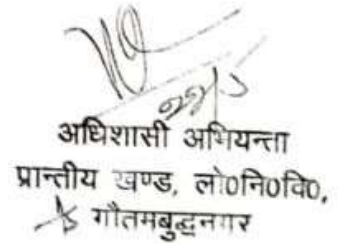 अधिशासी अभियन्ता
प्रान्तीय खण्ड, लो0नि0वि0,
गौतमबुद्धनगर